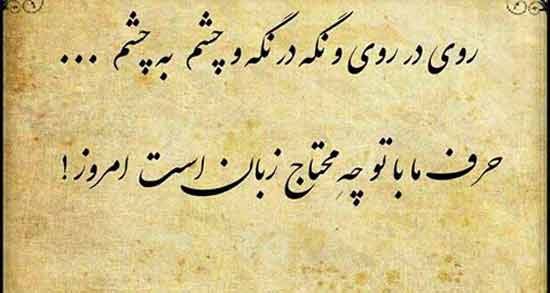 روی در روی و نگه در نگه و چشم به چشم ...
حرف ما با تو چهِ محتاج زبان است امروز!